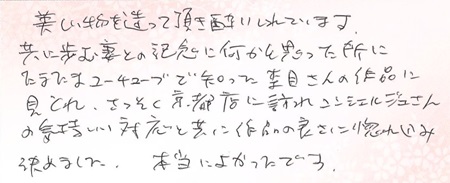 美しい物を造って頂き酔いしれています。
共に歩む妻との記念に何かと思った所に
たまたまユーチューブで知った杢目さんの作品に
見とれ、さっそく京都店に訪れコンシェルジュさん
の気持いい対応と共に作品の良さに惚れ込み
決めました。 本当によかったです。